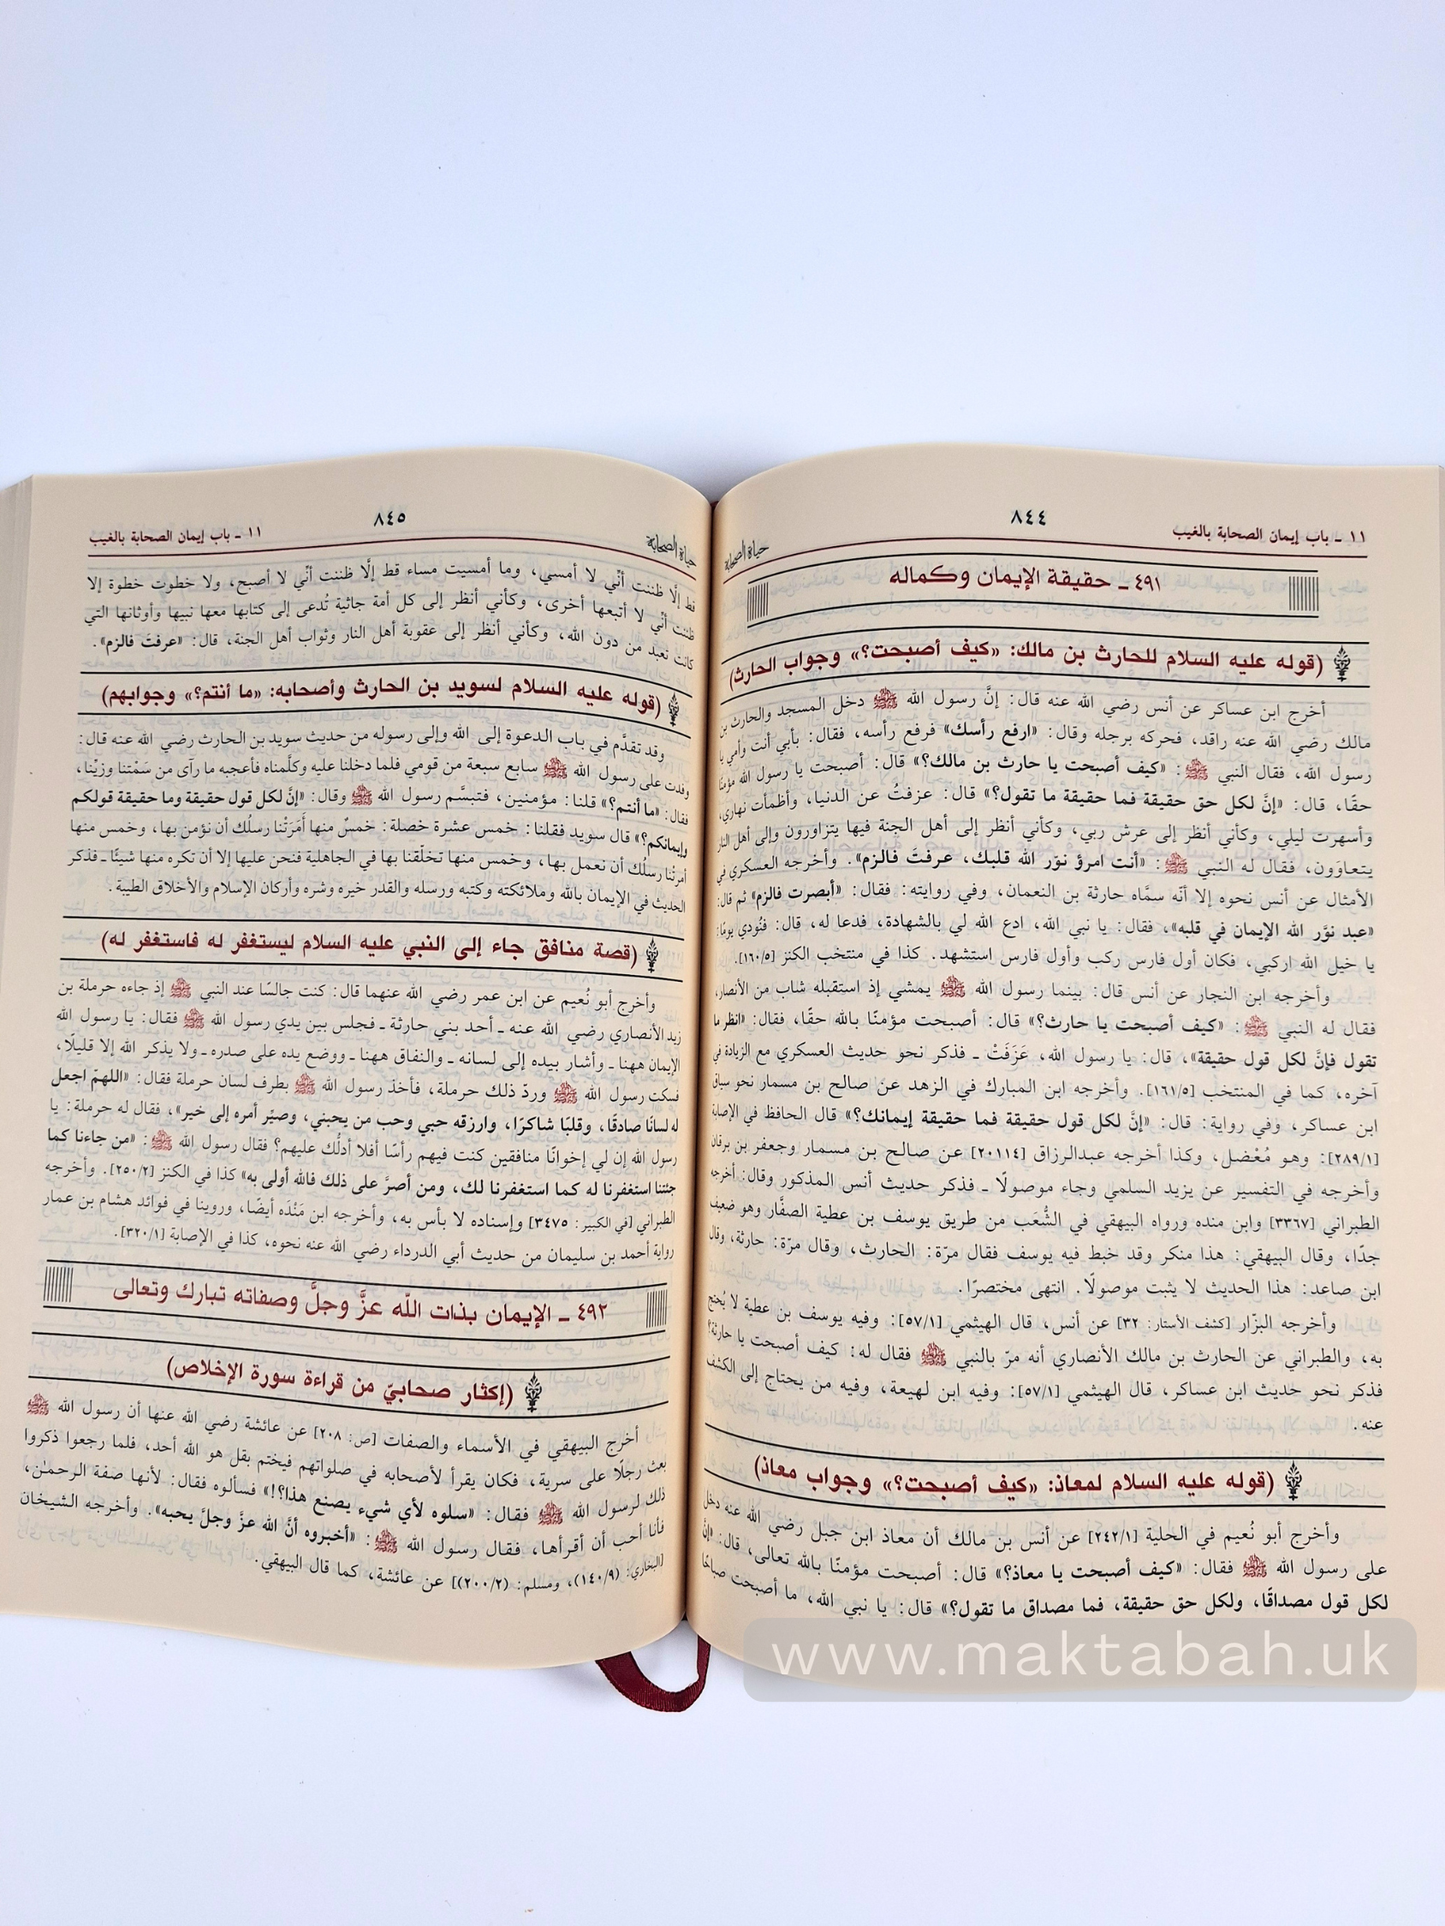 ١١ ـ باب إيمان الصحابة بالغيب
٨٤٤
حياة الصحابة
٤٩١ ـ حقيقة الإيمان وكماله
(قوله عليه السلام للحارث بن مالك: «كيف أصبحت؟» وجواب الحارث)
أخرج ابن عساكر عن أنس رضي الله عنه قال: إنَّ رسول الله ﷺ دخل المسجد والحارث بن
مالك رضي الله عنه راقد، فحركه برجله وقال: «ارفع رأسك» فرفع رأسه، فقال: بأبي أنت وأمي يا
رسول الله، فقال النبي ﷺ: «كيف أصبحت يا حارث بن مالك؟» قال: أصبحت يا رسول الله مؤمنًا
حقًا، قال: «إنَّ لكل حق حقيقة فما حقيقة ما تقول؟» قال: عزفتُ عن الدنيا، وأظمأت نهاري،
وأسهرت ليلي، وكأني أنظر إلى عرش ربي، وكأني أنظر إلى أهل الجنة فيها يتزاورون وإلى أهل النار
يتعاوَون، فقال له النّبي ﷺ: «أنت امرؤ نوَّر الله قلبك، عرفتَ فالزم». وأخرجه العسكري في
الأمثال عن أنس نحوه إلا أنّه سمَّاه حارثة بن النعمان، وفي روايته: فقال: «أبصرت فالزم» ثم قال:
«عبد نوَّر الله الإيمان في قلبه»، فقال: يا نبي الله، ادع الله لي بالشهادة، فدعا له، قال: فنُودي يومًا:
يا خيل الله اركبي، فكان أول فارس ركب وأول فارس استشهد. كذا في منتخب الكنز [١٦٠/٥].
وأخرجه ابن النجار عن أنس قال: بينما رسول الله ﷺ يمشي إذ استقبله شاب من الأنصار،
فقال له النبي ﷺ: «كيف أصبحت يا حارث؟» قال: أصبحت مؤمنًا بالله حقًا، فقال: «انظر ما
تقول فإنَّ لكل قول حقيقة»، قال: يا رسول الله، عَزَفَتْ ـ فذكر نحو حديث العسكري مع الزيادة في
آخره، كما في المنتخب [١٦١/٥]. وأخرجه ابن المبارك في الزهد عن صالح بن مسمار نحو سياق
ابن عساكر، وفي رواية: قال: «إنَّ لكل قول حقيقة فما حقيقة إيمانك؟» قال الحافظ في الإصابة
[٢٨٩/١]: وهو مُعْضل، وكذا أخرجه عبدالرزاق [٢٠١١٤] عن صالح بن مسمار وجعفر بن برقان
وأخرجه في التفسير عن يزيد السلمي وجاء موصولًا ـ فذكر حديث أنس المذكور وقال: أخرجه
الطبراني [٣٣٦٧] وابن منده ورواه البيهقي في الشُّعَب من طريق يوسف بن عطية الصفَّار وهو ضعيف
جدًا، وقال البيهقي: هذا منكر وقد خبط فيه يوسف فقال مرّة: الحارث، وقال مرّة: حارثة، وقال
ابن صاعد: هذا الحديث لا يثبت موصولًا. انتهى مختصرًا.
وأخرجه البزّار [كشف الأستار: ٣٢] عن أنس، قال الهيثمي [٥٧/١]: وفيه يوسف بن عطية لا يُحتج
به، والطبراني عن الحارث بن مالك الأنصاري أنه مرّ بالنبي ﷺ فقال له: كيف أصبحت يا حارثة؟
فذكر نحو حديث ابن عساكر، قال الهيثمي [٥٧/١]: وفيه ابن لهيعة، وفيه من يحتاج إلى الكشف
عنه.
(قوله عليه السلام لمعاذ: «كيف أصبحت؟» وجواب معاذ)
وأخرج أبو نُعيم في الحلية [٢٤٢/١] عن أنس بن مالك أن معاذ ابن جبل رضي الله عنه دخل
على رسول الله ﷺ فقال: «كيف أصبحت يا معاذ؟» قال: أصبحت مؤمنًا بالله تعالى، قال: «إنَّ
لكل قول مصداقًا، ولكل حق حقيقة، فما مصداق ما تقول؟» قال: يا نبي الله، ما أصبحت صباحًا
حياة الصحابة
٨٤٥
١١ ـ باب إيمان الصحابة بالغيب
قط إلَّا ظننت أنِّي لا أمسي، وما أمسيت مساء قط إلَّا ظننت أنِّي لا أصبح، ولا خطوت خطوة إلا
ظننت أنِّي لا أتبعها أخرى، وكأني أنظر إلى كل أمة جاثية تُدعى إلى كتابها معها نبيها وأوثانها التي
كانت تعبد من دون الله، وكأني أنظر إلى عقوبة أهل النار وثواب أهل الجنة، قال: «عرفتَ فالزم».
(قوله عليه السلام لسويد بن الحارث وأصحابه: «ما أنتم؟» وجوابهم)
وقد تقدَّم في باب الدعوة إلى الله وإلى رسوله من حديث سويد بن الحارث رضي الله عنه قال:
وفدت على رسول الله ﷺ سابع سبعة من قومي فلما دخلنا عليه وكلَّمناه فأعجبه ما رآى من سَمْتنا وزيِّنا،
فقال: «ما أنتم؟» قلنا: مؤمنين، فتبسَّم رسول الله ﷺ وقال: «إنَّ لكل قول حقيقة وما حقيقة قولكم
وإيمانكم؟» قال سويد فقلنا: خمس عشرة خصلة: خمسٌ منها أَمَرَتْنا رسلُك أن نؤمن بها، وخمس منها
أمرتْنا رسلُك أن نعمل بها، وخمس منها تخلّقنا بها في الجاهلية فنحن عليها إلا أن تكره منها شيئًا ـ فذكر
الحديث في الإيمان بالله وملائكته وكتبه ورسله والقدر خيره وشره وأركان الإسلام والأخلاق الطيبة.
(قصة منافق جاء إلى النبي عليه السلام ليستغفر له فاستغفر له)
وأخرج أبو نُعيم عن ابن عمر رضي الله عنهما قال: كنت جالسًا عند النبي ﷺ إذ جاءه حرملة بن
زيد الأنصاري رضي الله عنه ـ أحد بني حارثة ـ فجلس بين يدي رسول الله ﷺ فقال: يا رسول الله
الإيمان ههنا ـ وأشار بيده إلى لسانه ـ والنفاق ههنا ـ ووضع يده على صدره ـ ولا يذكر الله إلا قليلًا،
فسكت رسول الله ﷺ وردّ ذلك حرملة، فأخذ رسول الله ﷺ بطرف لسان حرملة فقال: «اللهمّ اجعل
له لسانًا صادقًا، وقلبًا شاكرًا، وارزقه حبي وحب من يحبني، وصيّر أمره إلى خير»، فقال له حرملة: يا
رسول الله إن لي إخوانًا منافقين كنت فيهم رأسًا أفلا أدلُّك عليهم؟ فقال رسول الله ﷺ: «من جاءنا كما
جئتنا استغفرنا له كما استغفرنا لك، ومن أصرَّ على ذلك فالله أولى به» كذا في الكنز [٢٥٠/٢]. وأخرجه
الطبراني [في الكبير: ٣٤٧٥] وإسناده لا بأس به، وأخرجه ابن مَنْدَه أيضًا، وروينا في فوائد هشام بن عمار
رواية أحمد بن سليمان من حديث أبي الدرداء رضي الله عنه نحوه، كذا في الإصابة [٣٢٠/١].
٤٩٢ ـ الإيمان بذات اللّه عزَّ وجلَّ وصفاته تبارك وتعالى
(إكثار صحابيّ من قراءة سورة الإخلاص)
أخرج البيهقي في الأسماء والصفات [ص: ٢٠٨] عن عائشة رضي الله عنها أن رسول الله ﷺ
بعث رجلًا على سرية، فكان يقرأ لأصحابه في صلواتهم فيختم بقل هو الله أحد، فلما رجعوا ذكروا
ذلك لرسول الله ﷺ فقال: «سلوه لأي شيء يصنع هذا؟!» فسألوه فقال: لأنها صفة الرحمٰن،
فأنا أحب أن أقرأها، فقال رسول الله ﷺ: «أخبروه أنَّ الله عزَّ وجلَّ يحبه». وأخرجه الشيخان
[البخاري: (١٤٠/٩)، ومسلم: (٢٠٠/٢)] عن عائشة، كما قال البيهقي.
www.maktabah.uk